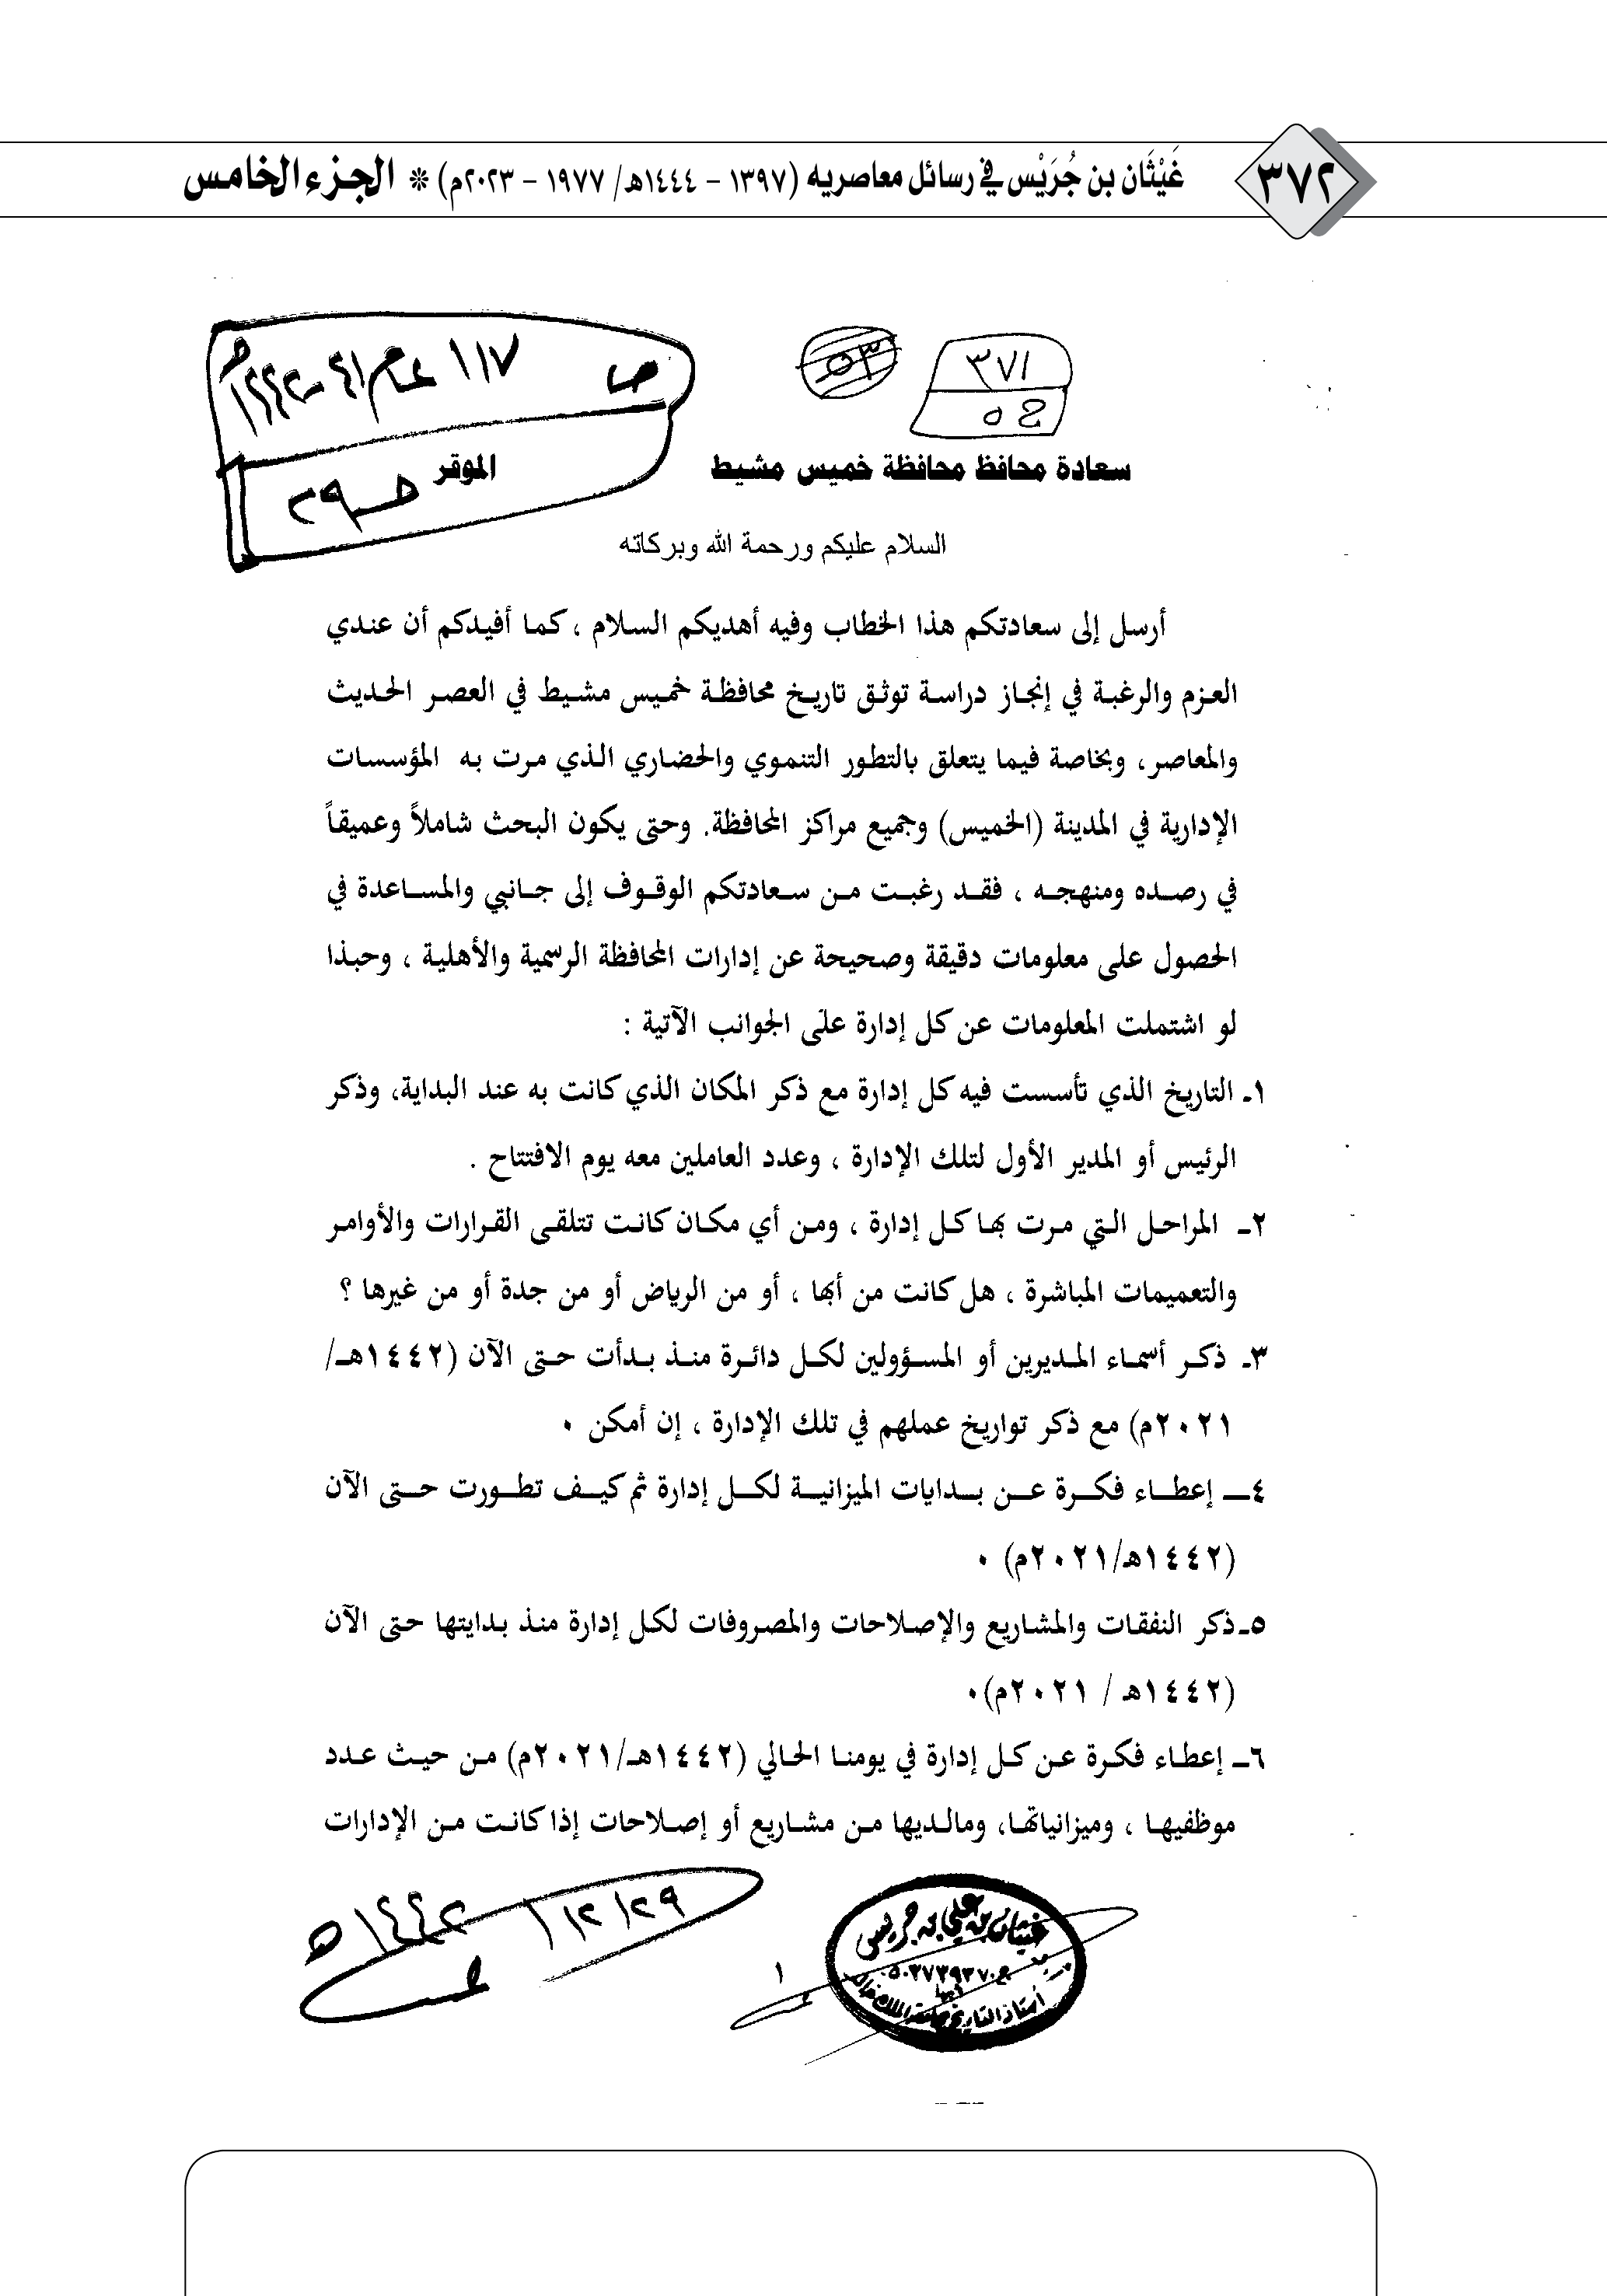 ٣٧٢
غَيْثَان بن جُرَيْس في رسائل معاصريه (١٣٩٧ - ١٤٤٤هـ/ ١٩٧٧ - ٢٠٢٣م) * الجزء الخامس
ص ١١٧ عام ٤١-١٤٤٢هـ
٥٣
٣٧١
٥٢
سعادة محافظ محافظة خميس مشيط الموقر
السلام عليكم ورحمة الله وبركاته
أرسل إلى سعادتكم هذا الخطاب وفيه أهديكم السلام ، كما أفيدكم أن عندي
العزم والرغبة في إنجاز دراسة توثق تاريخ محافظة خميس مشيط في العصر الحديث
والمعاصر، وبخاصة فيما يتعلق بالتطور التنموي والحضاري الذي مرت به المؤسسات
الإدارية في المدينة (الخميس) وجميع مراكز المحافظة. وحتى يكون البحث شاملاً وعميقاً
في رصده ومنهجه ، فقد رغبت من سعادتكم الوقوف إلى جانبي والمساعدة في
الحصول على معلومات دقيقة وصحيحة عن إدارات المحافظة الرسمية والأهلية ، وحبذا
لو اشتملت المعلومات عن كل إدارة على الجوانب الآتية :
١ـ التاريخ الذي تأسست فيه كل إدارة مع ذكر المكان الذي كانت به عند البداية، وذكر
الرئيس أو المدير الأول لتلك الإدارة ، وعدد العاملين معه يوم الافتتاح .
٢ـ المراحل التي مرت بها كل إدارة ، ومن أي مكان كانت تتلقى القرارات والأوامر
والتعميمات المباشرة ، هل كانت من أبها ، أو من الرياض أو من جدة أو من غيرها ؟
٣ـ ذكر أسماء المديرين أو المسؤولين لكل دائرة منذ بدأت حتى الآن (١٤٤٢هـ/
٢٠٢١م) مع ذكر تواريخ عملهم في تلك الإدارة ، إن أمكن ٠
٤ـ إعطاء فكرة عن بدايات الميزانية لكل إدارة ثم كيف تطورت حتى الآن
(١٤٤٢هـ/٢٠٢١م) ٠
٥ـ ذكر النفقات والمشاريع والإصلاحات والمصروفات لكل إدارة منذ بدايتها حتى الآن
(١٤٤٢هـ / ٢٠٢١م)٠
٦ـ إعطاء فكرة عن كل إدارة في يومنا الحالي (١٤٤٢هـ/٢٠٢١م) من حيث عدد
موظفيها ، وميزانياتها، ومالديها من مشاريع أو إصلاحات إذا كانت من الإدارات
١
غيثان بن علي بن جريس
أستاذ التاريخ بجامعة الملك خالد